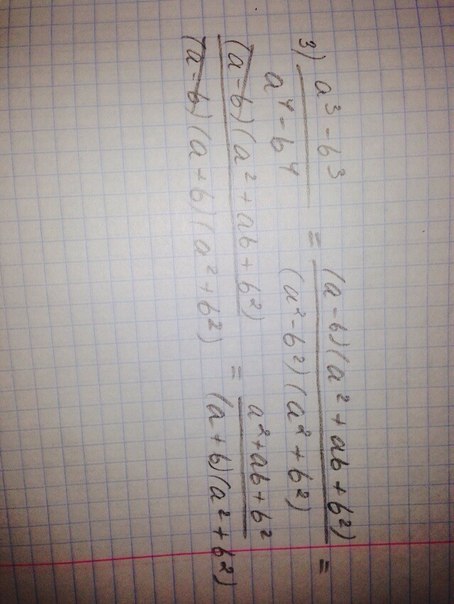 3) a³ - b³ / a⁴ - b⁴ = (a - b)(a² + ab + b²) / (a² - b²)(a² + b²) =
(a - b)(a² + ab + b²) / (a - b)(a + b)(a² + b²) = a² + ab + b² / (a + b)(a² + b²)